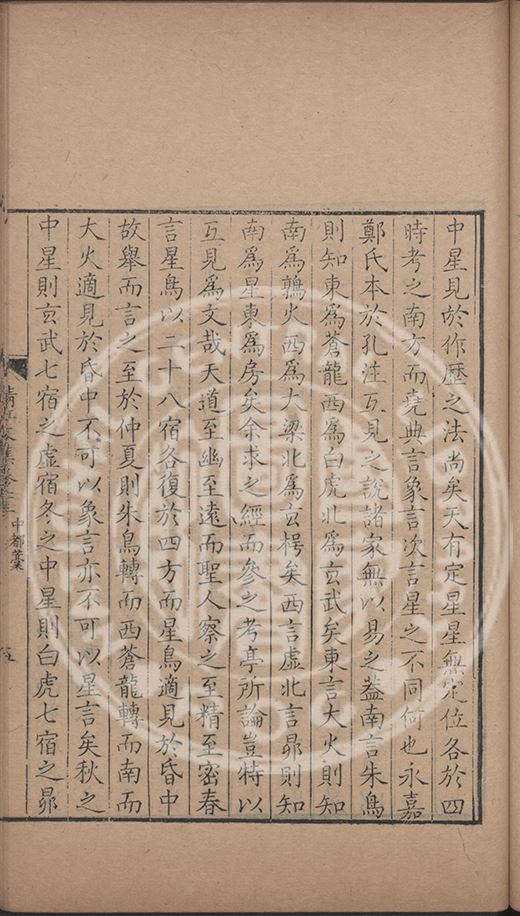 中星見於作歷之法尚矣天有定星星無定位各於四
時考之南方而堯典言象言次言星之不同何也永嘉
鄭氏本於孔注互見之說諸家無以易之蓋南言朱鳥
則知東爲蒼龍西爲白虎北爲玄武矣東言大火則知
南爲鶉火西爲大梁北爲玄枵矣西言虛北言昴則知
南爲星東爲房矣余求之經而參之考亭所論豈特以
互見爲文哉天道至幽至遠而聖人察之至精至密春
言星鳥以二十八宿各復於四方而星鳥適見於昏中
故舉而言之至於仲夏則朱鳥轉而西蒼龍轉而南而
大火適見於昏中不可以象言亦不可以星言矣秋之
中星則玄武七宿之虛宿冬之中星則白虎七宿之昴
中都藁